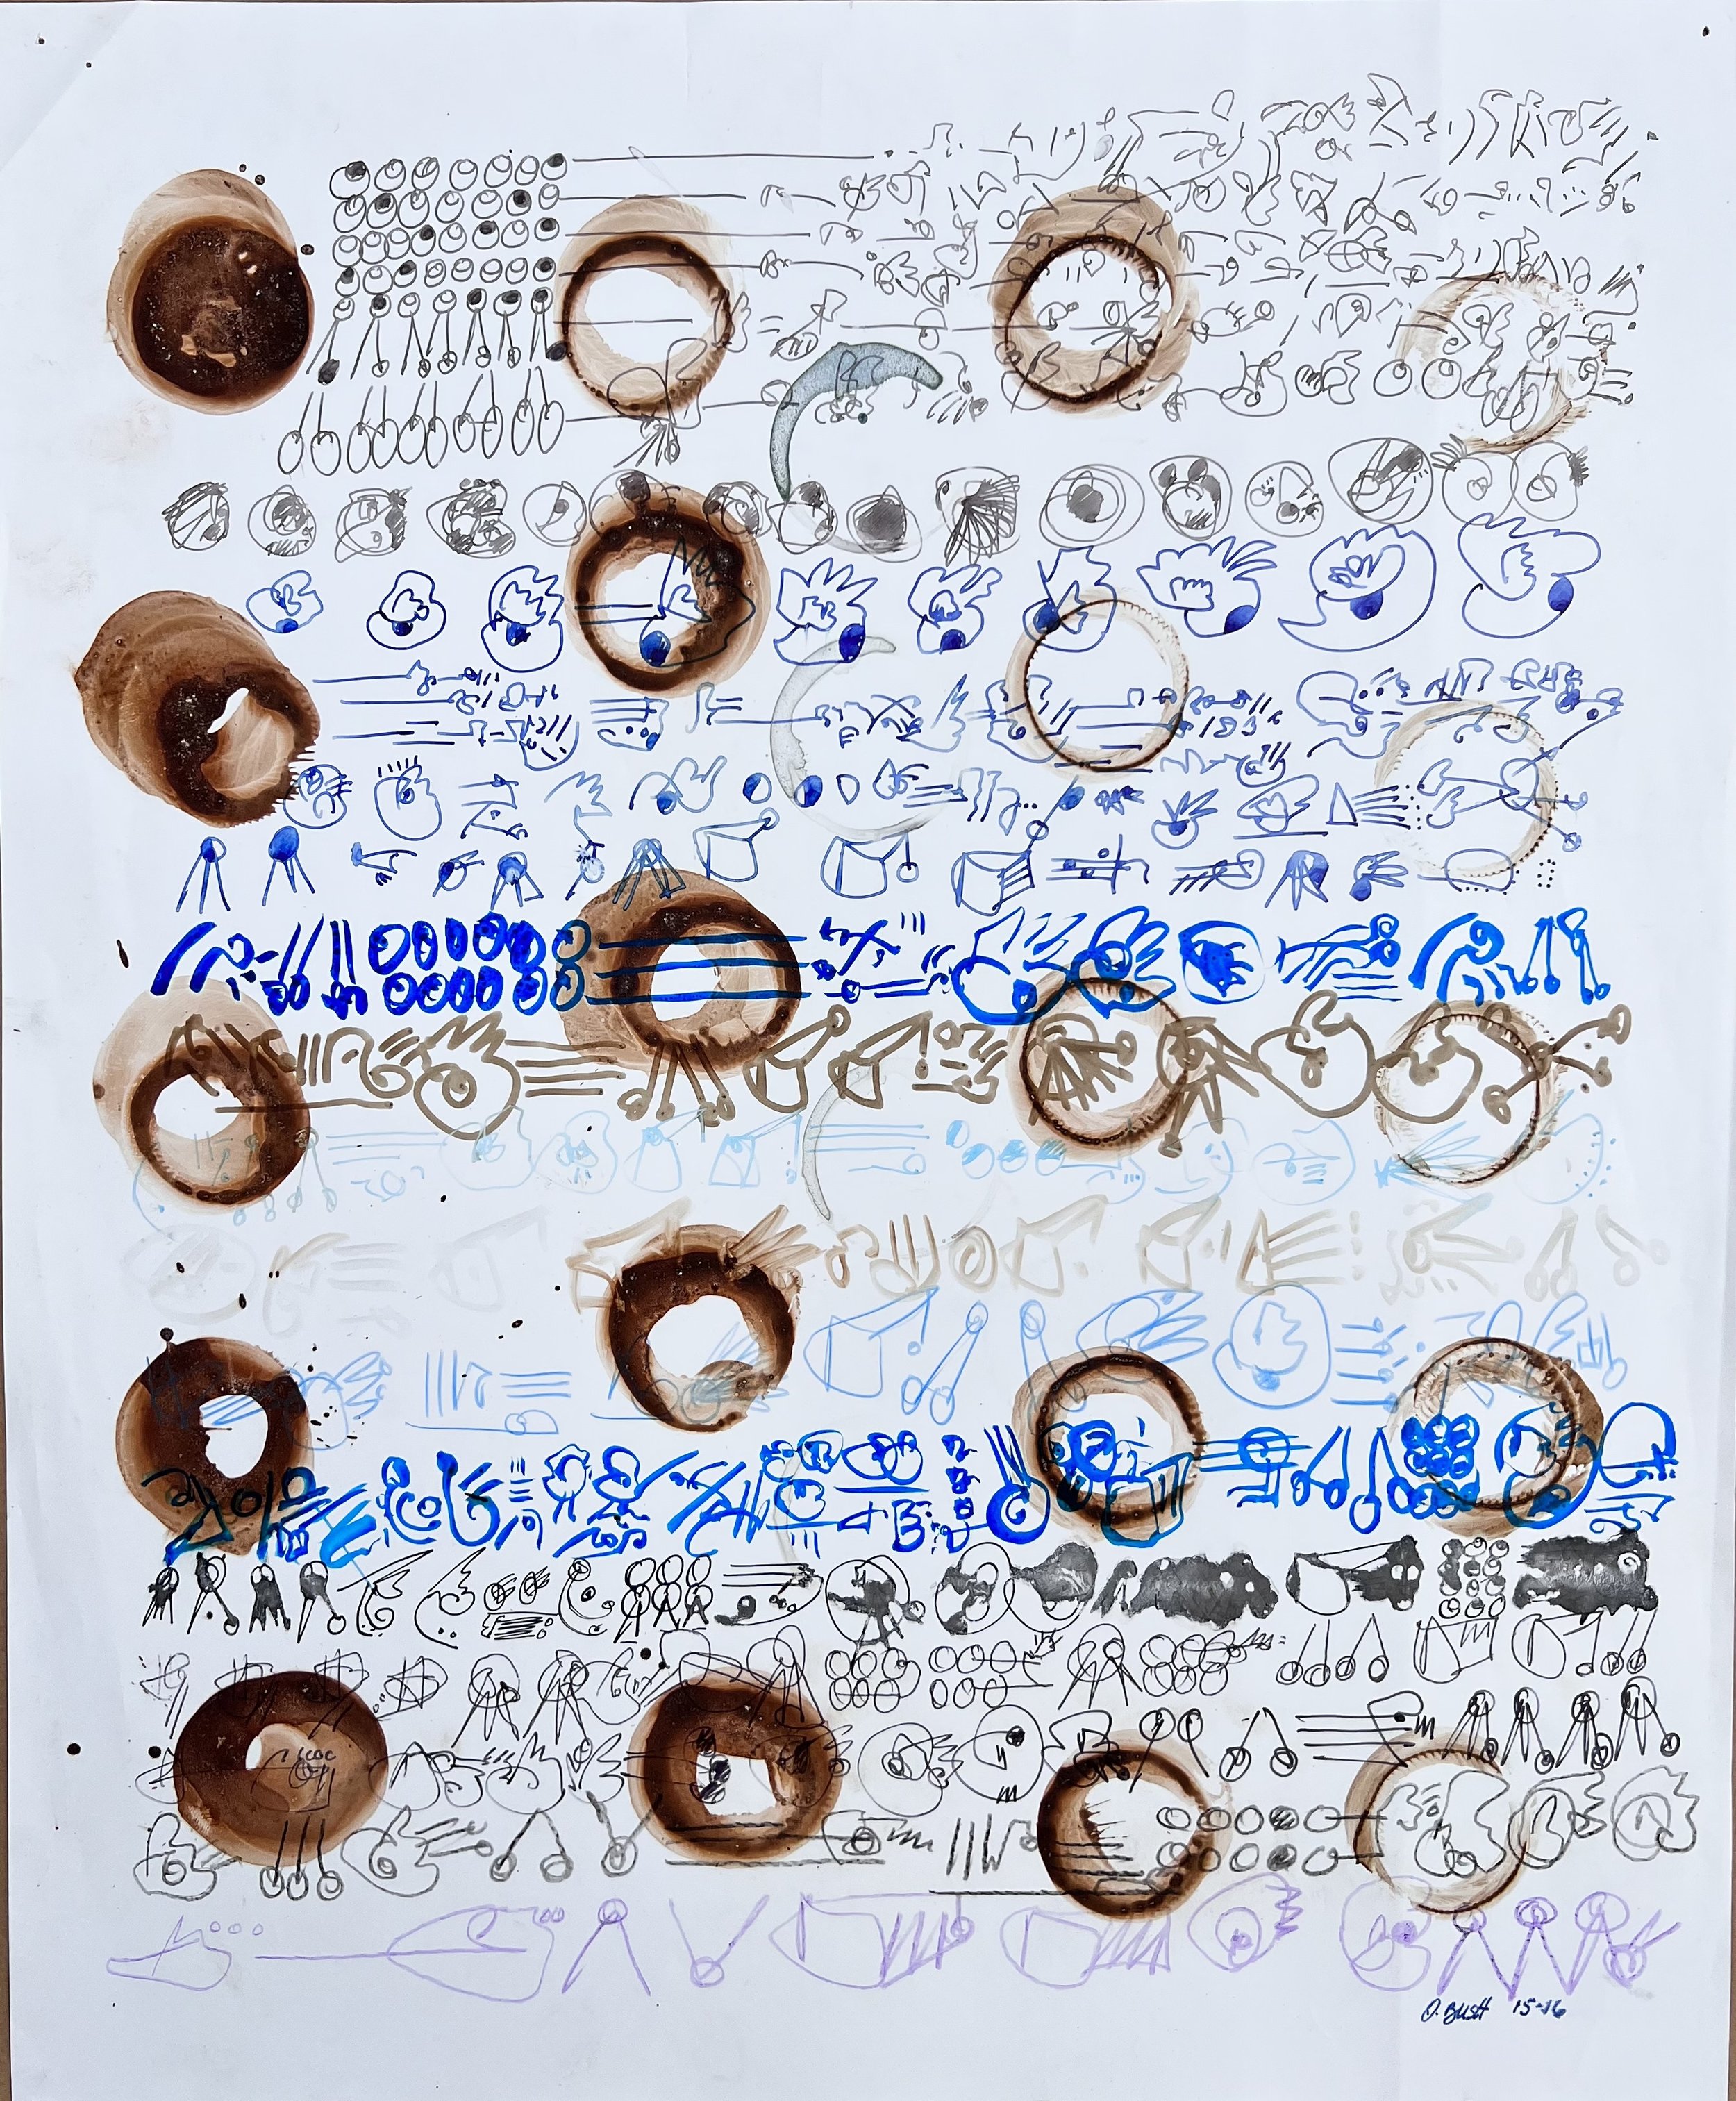 O. BUSH 15-16